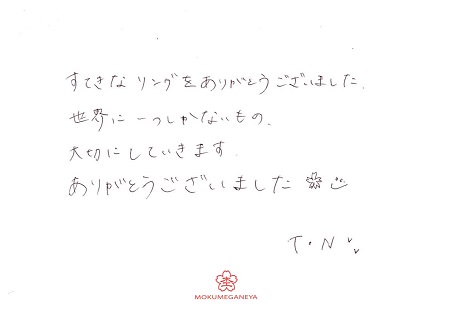 すてきな リングをありがとうございました.
世界に 一つしかないもの.
大切にしていきます.
ありがとうございました
T・N
MOKUMEGANEYA